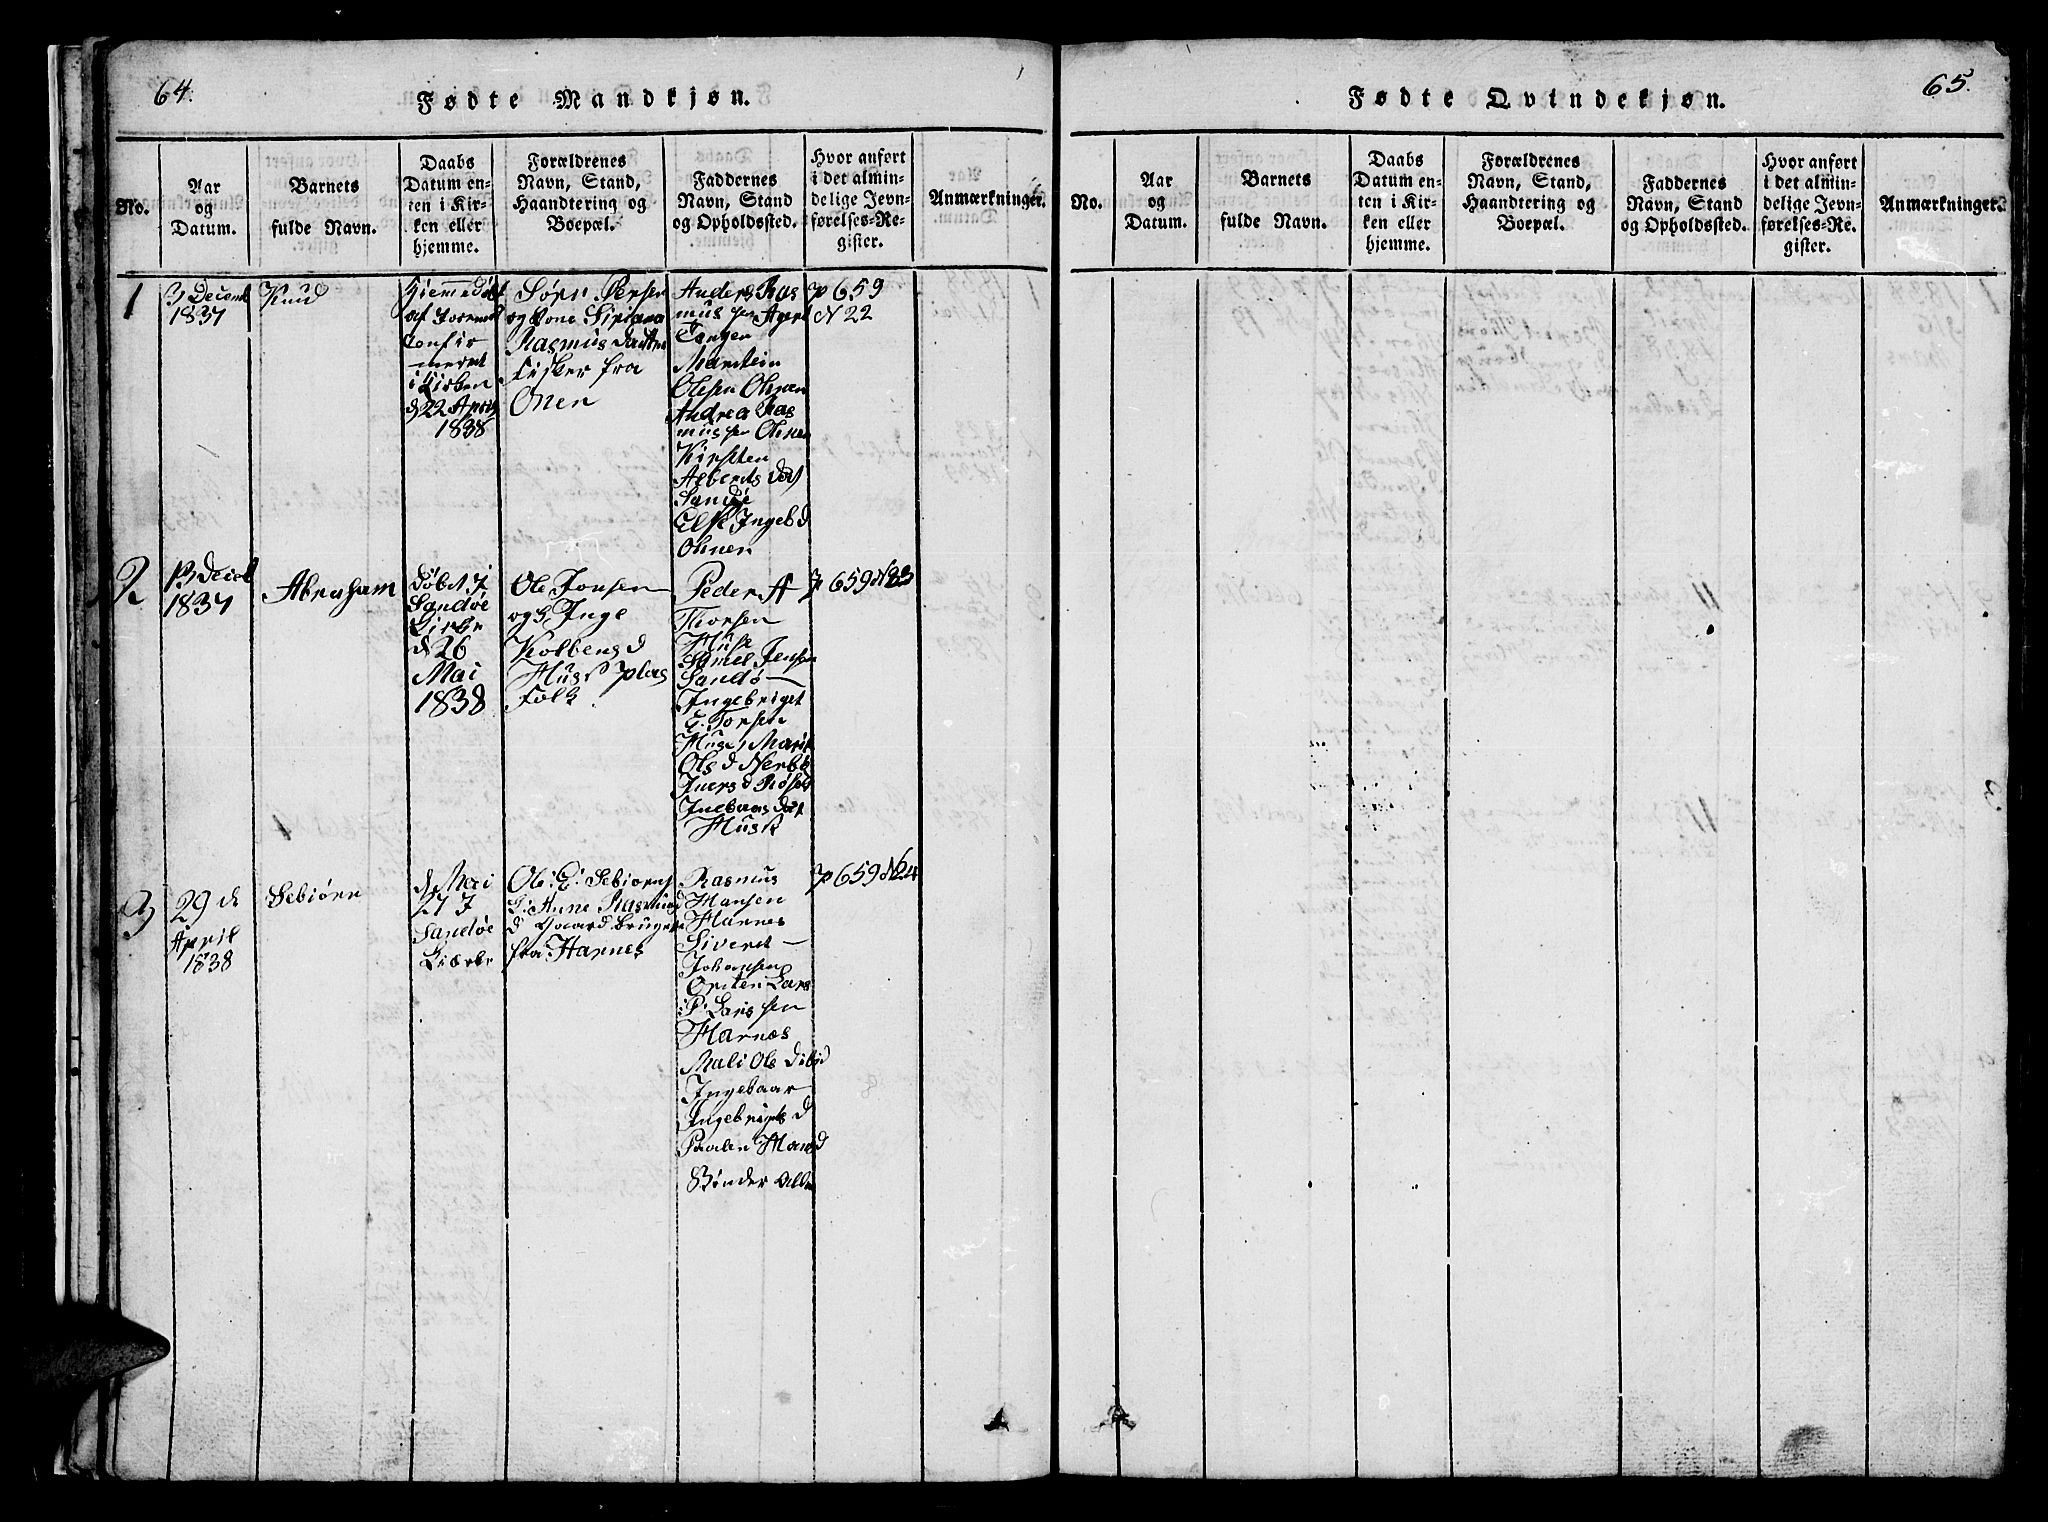 64.
Fødte Mandkjøn.
No.
Aar
og
Datum.
Barnets
fulde Navn.
Daabs
Datum en-
ten i Kir-
ken eller
hjemme.
Forældrenes
Navn, Stand,
Haandtering og
Boepæl.
Faddernes
Navn, Stand
og Opholdssted.
Hvor anført
i det almin-
delige Jevn-
førelses-Re-
gister.
Anmærkninger.
1
3 Decemb
1837
Knud
af
Confir
meret
i Kirken
d 22 April
1838
Sörn
og Kone
Rasmus datter
Fisker fra
Onen
Anders Ras
mussen
Tangen
Olsen Ohnen
Andrea Ras
mussen Ohnen
Kirsten
Alberts dat
Sandöe
Else Ingeb d
Ohnen
p 659
N 22
2
13 Decb
1837
Abraham
döbet I
Sandöe
Kirke
d 26
Mai
1838
Ole Jonsen
og Inge
Kolbens d
Huss plas
Folk
Peder A
Thorsen
Huse
Jensen
Sandö
Ingebriget
E. Torsen
Marit
Ols d
Ivers d
dat
Husk
p 659 N 23
3
29 de
April
1838
Sebiörn
d Mai
27 I
Sandöe
Kierke
Ole E Sebiörns
Anne Rasmus
d Gaard bruger
fra Harnes
Rasmus
Hansen
Harnes
Siveret
Johansen
Orsten Lars
P Larssen
Harnæs
Mali Ole
Ingebaar
Ingebrigts d
Hans d
Bönder
p 659 N 24
65.
Fødte Qvindekjøn.
No.
Aar
og
Datum.
Barnets
fulde Navn.
Daabs
Datum en-
ten i Kir-
ken eller
hjemme.
Forældrenes
Navn, Stand,
Haandtering og
Boepæl.
Faddernes
Navn, Stand
og Opholdssted.
Hvor anført
i det almin-
delige Jevn-
førelses-Re-
gister.
Anmærkninger.